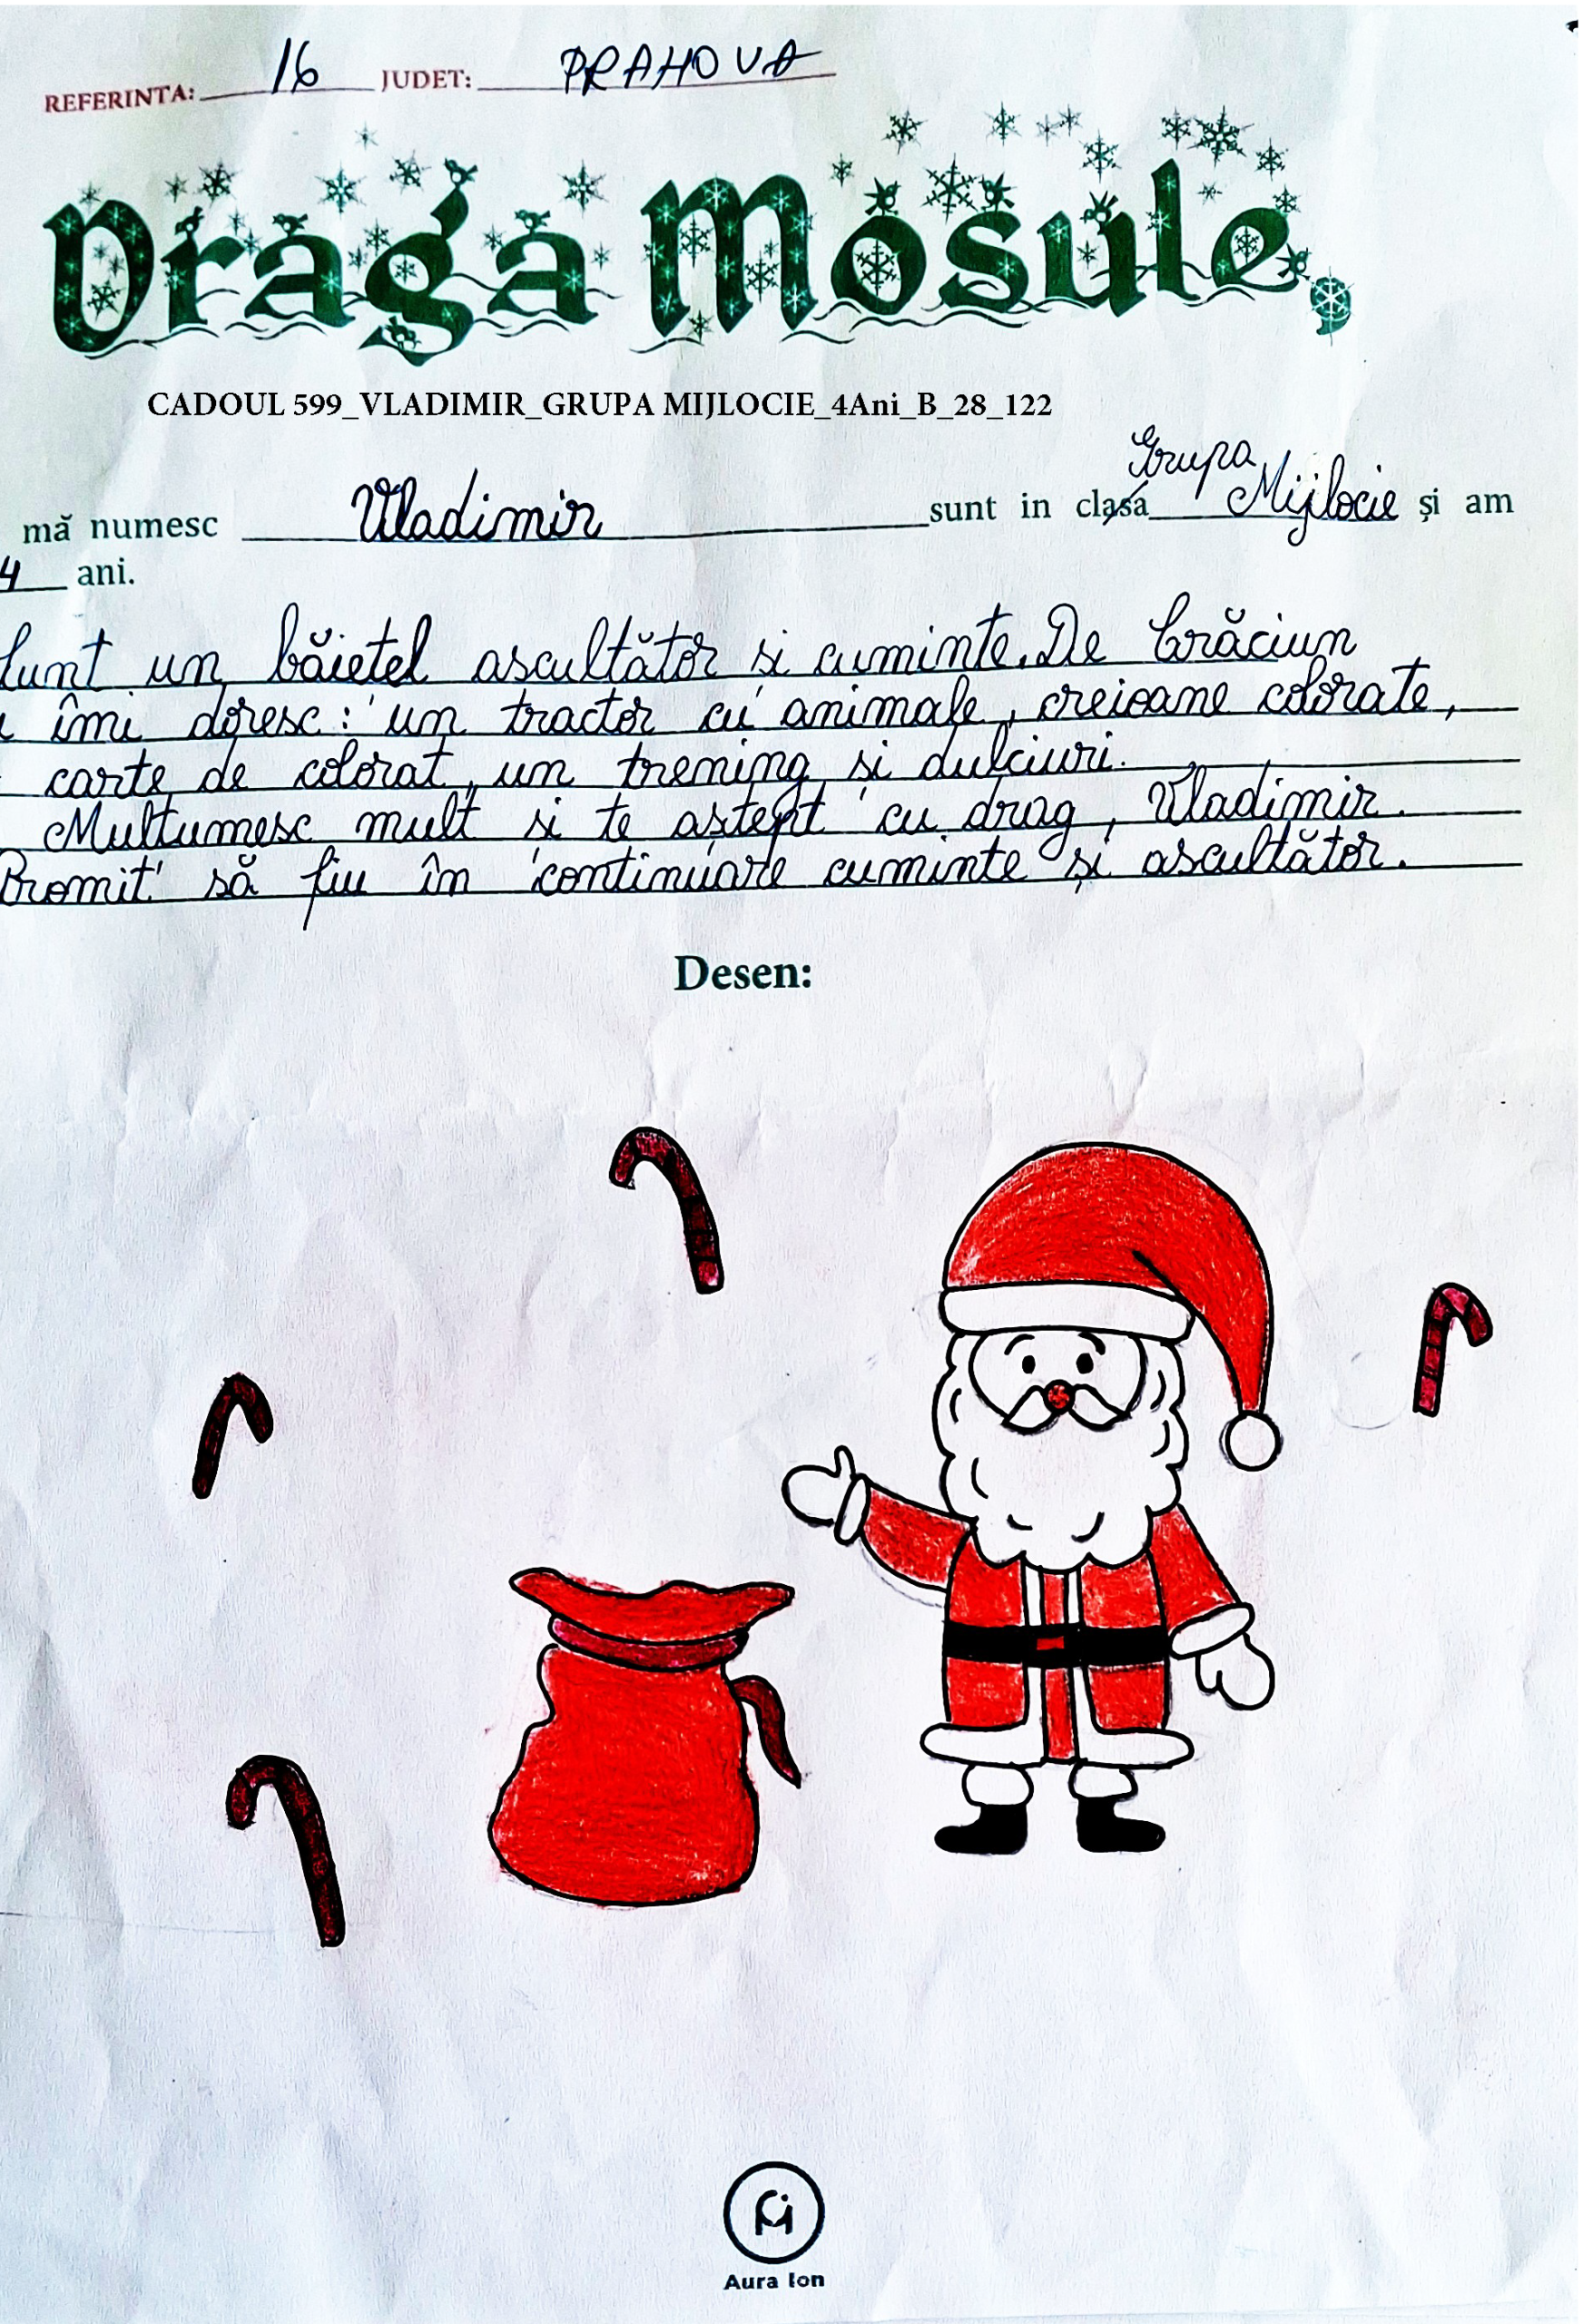 REFERINTA: 16 JUDET: PRAHOVA
Draga Mosule,
CADOUL 599_VLADIMIR_GRUPA MIJLOCIE_4Ani_B_28_122
Grupa
mă numesc Vladimir sunt in clasa Mijlocie și am
4 ani.
Sunt un băiețel ascultător și cuminte. De Crăciun
îmi doresc: un tractor cu animale, creioane colorate,
carte de colorat, un trening și dulciuri.
Mulțumesc mult și te aștept cu drag, Vladimir.
Promit să fiu în continuare cuminte și ascultător.
Desen:
Aura Ion